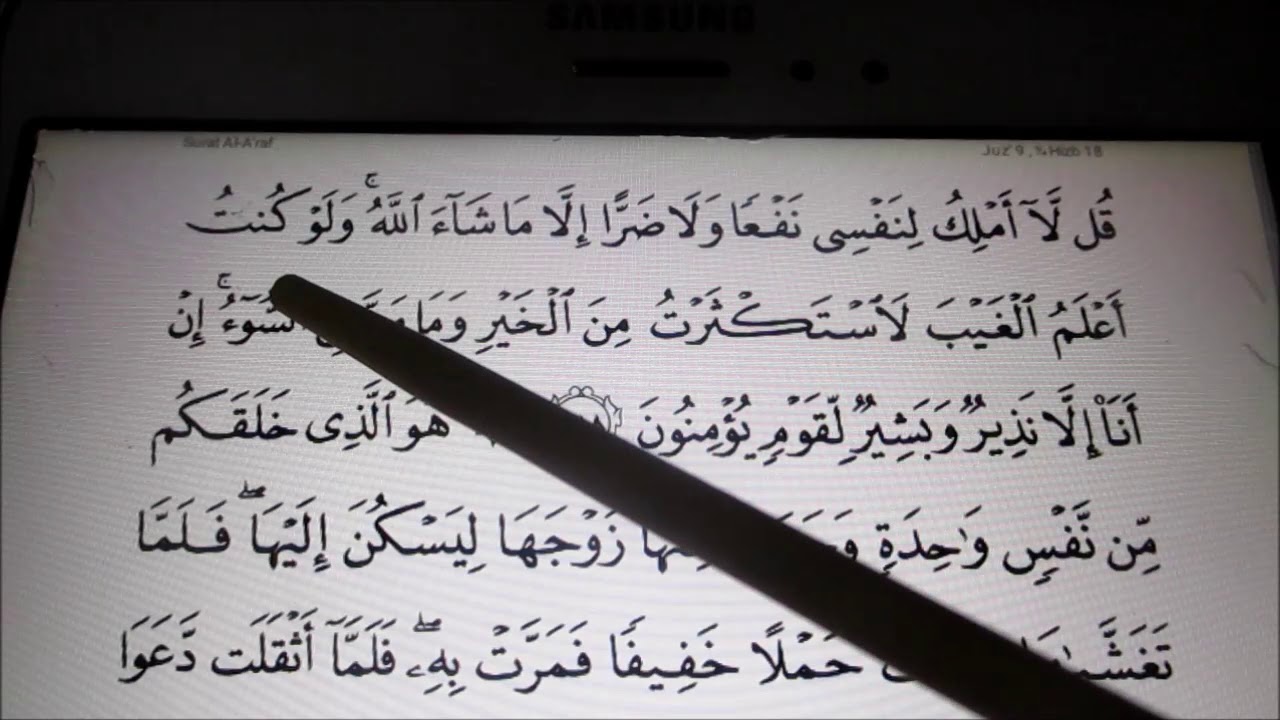 SAMSUNG
Surat Al-A'raf
Juz 9 , ¾ Hizb 18
قُل لَّآ أَمۡلِكُ لِنَفۡسِي نَفۡعٗا وَلَا ضَرًّا إِلَّا مَا شَآءَ ٱللَّهُۚ وَلَوۡ كُنتُ
أَعۡلَمُ ٱلۡغَيۡبَ لَٱسۡتَكۡثَرۡتُ مِنَ ٱلۡخَيۡرِ وَمَا ٱلسُّوٓءُۚ إِنۡ
أَنَا۠ إِلَّا نَذِيرٞ وَبَشِيرٞ لِّقَوۡمٖ يُؤۡمِنُونَ هُوَ ٱلَّذِي خَلَقَكُم
مِّن نَّفۡسٖ وَٰحِدَةٖ زَوۡجَهَا لِيَسۡكُنَ إِلَيۡهَاۖ فَلَمَّا
تَغَشَّىٰهَا حَمۡلًا خَفِيفٗا فَمَرَّتۡ بِهِۦۖ فَلَمَّآ أَثۡقَلَت دَّعَوَا